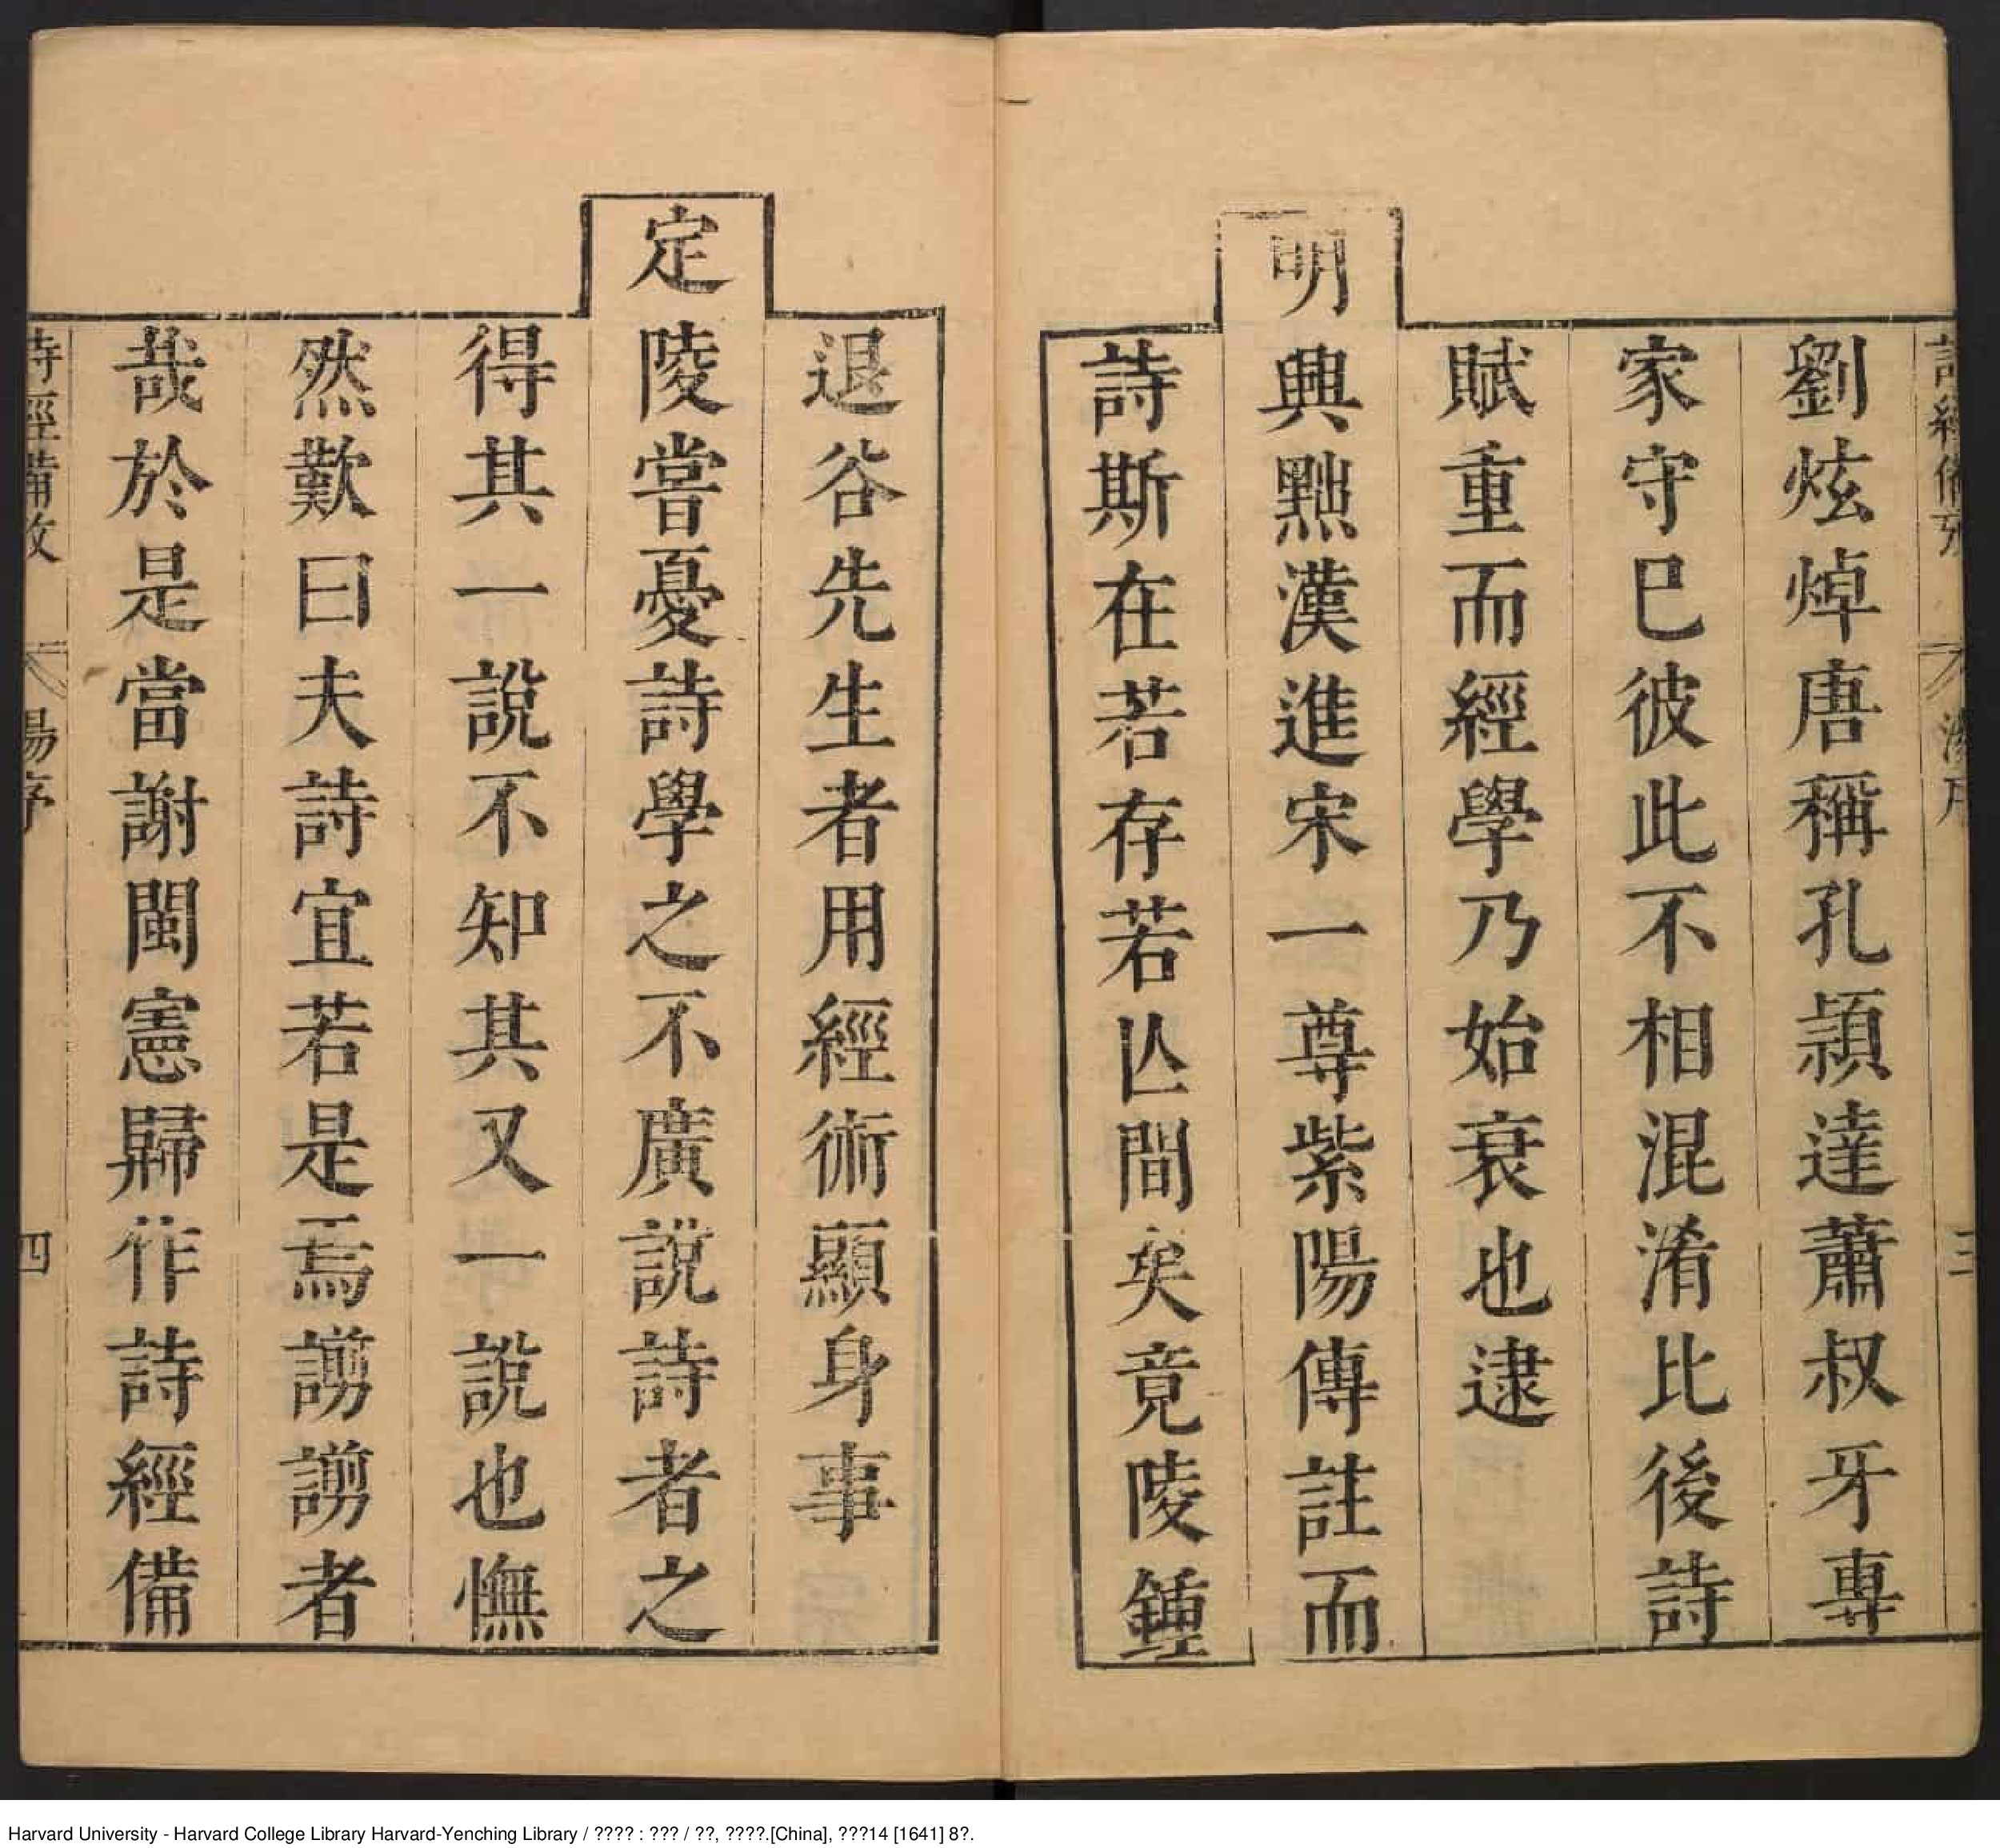 劉炫焯唐稱孔頴達蕭叔牙專
家守巳彼此不相混淆比後詩
賦重而經學乃始衰也逮
明興黜漢進宋一尊紫陽傳註而
詩斯在若存若亾間矣竟陵鍾
退谷先生者用經術顯身事
定陵嘗憂詩學之不廣說詩者之
得其一說不知其又一說也憮
然歎曰夫詩宜若是焉謭謭者
哉於是當謝閩憲歸作詩經備
詩經備攷
四
Harvard University - Harvard College Library Harvard-Yenching Library / ???? : ??? / ??, ????.[China], ???14 [1641] 8?.